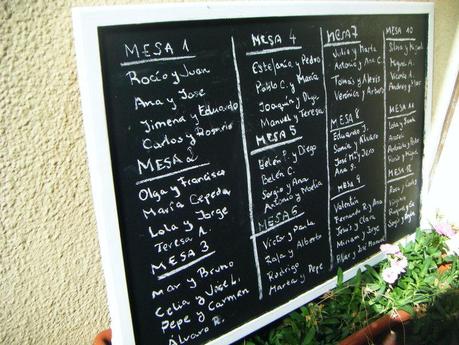 MESA 1
Rocío y Juan
Ana y Jose
Jimena y Eduardo
Carlos y Rosario
MESA 2
Olga y Francisco
María Cepeda
Lola y Jorge
Teresa A.
MESA 3
Mar y Bruno
Celia y Jose L.
Pepe y Carmen
Álvaro R.
MESA 4
Estefanía y Pedro
Pablo C. y María
Joaquín y Olga
Manuel y Teresa
MESA 5
Belén F. y Diego
Belén C.
Sergio y Ana
Antonio y Marta
MESA 6
Victor y Paula
Rafa y Alberto
Rodrigo
Marea y Pepe
MESA 7
Julia y Marta
Antonio y Ana C.
Tomás y Alexis
Verónica y Arturo
MESA 8
Eduardo J.
Sonia y Álvaro
José Mª y Jero
Ana S.
MESA 9
Valentín
Fernando R. y Ana
Jesús y Clara
Miriam y Jorge
Pilar y José Manuel
MESA 10
Silvia y
Miguel A.
Vicente
Andrea y
MESA 11
Lola y
Araceli
y
Rocío y
MESA 12
Rosa y Carlos
Virginia
Begoña y
Sergio y